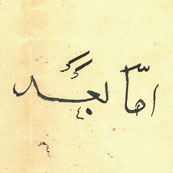 امّا بعد